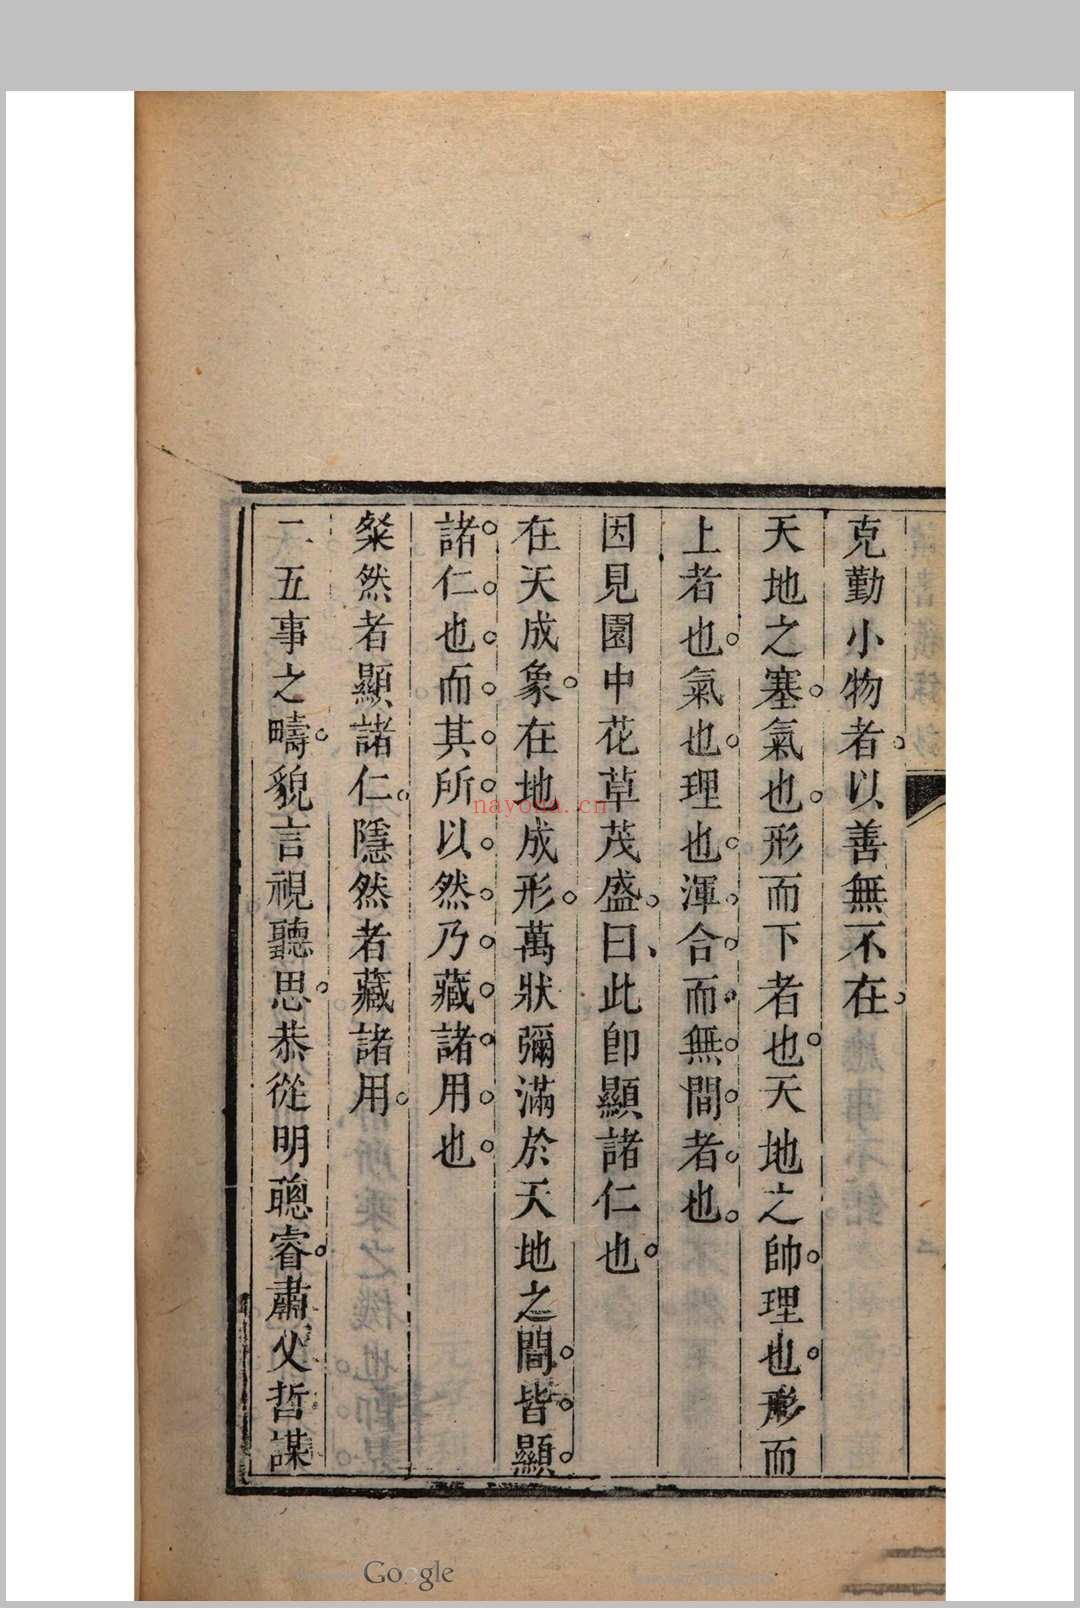 克勤小物者以善無不在
天地之塞氣也形而下者也天地之帥理也形而
上者也氣也理也渾合而無間者也
因見園中花草茂盛曰此卽顯諸仁也
在天成象在地成形萬狀彌滿於天地之間皆顯
諸仁也而其所以然乃藏諸用也
粲然者顯諸仁隱然者藏諸用
二五事之疇貌言視聽思恭從明聰睿肅乂哲謀
nayona.cn
Google